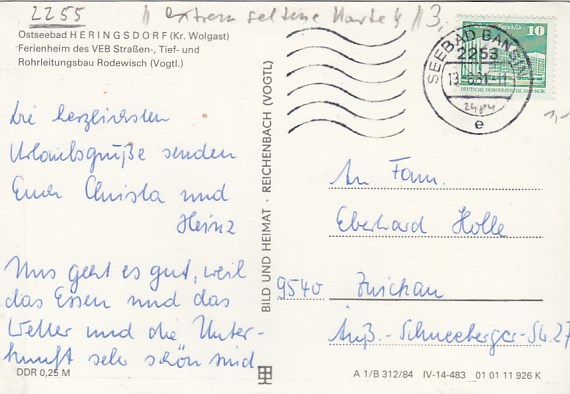 2255
" extrem seltene Karte 4
Ostseebad HERINGSDORF (Kr. Wolgast)
Ferienheim des VEB Straßen-, Tief- und
Rohrleitungsbau Rodewisch (Vogtl.)
10
SEEBAD BANSIN
2253
e
1,-
Die herzlichsten
Urlaubsgrüße senden
Euch Christa und
Heinz
Uns geht es gut, weil
das Essen und das
Wetter und die Unter-
kunft sehr schön sind
DDR 0,25 M
BILD UND HEIMAT · REICHENBACH (VOGTL)
An Fam.
Eberhard Holle
9540 Zwickau
Äuß.-Schneeberger-Str. 27
A 1/B 312/84 IV-14-483 01 01 11 926 K